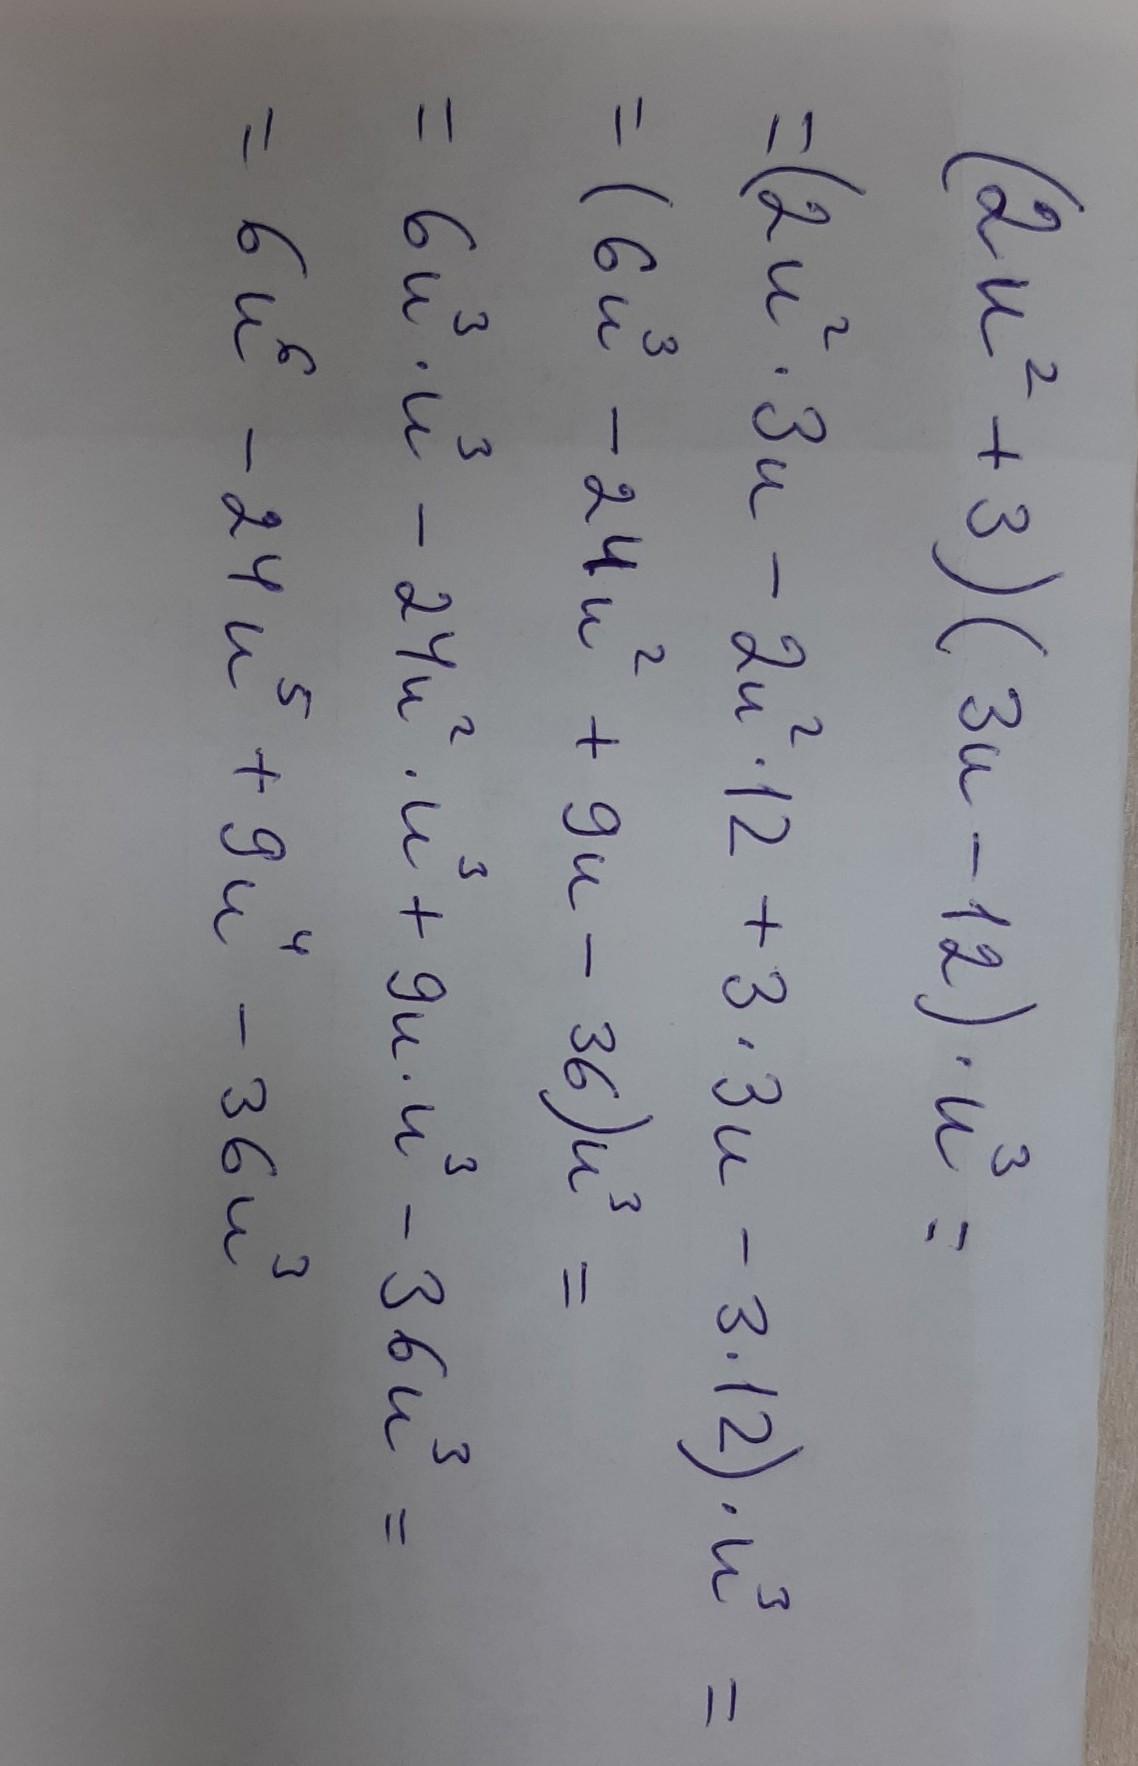 (2u² + 3)(3u - 12) · u³ =
= (2u² · 3u - 2u² · 12 + 3 · 3u - 3 · 12) · u³ =
= (6u³ - 24u² + 9u - 36)u³ =
= 6u³ · u³ - 24u² · u³ + 9u · u³ - 36u³ =
= 6u⁶ - 24u⁵ + 9u⁴ - 36u³